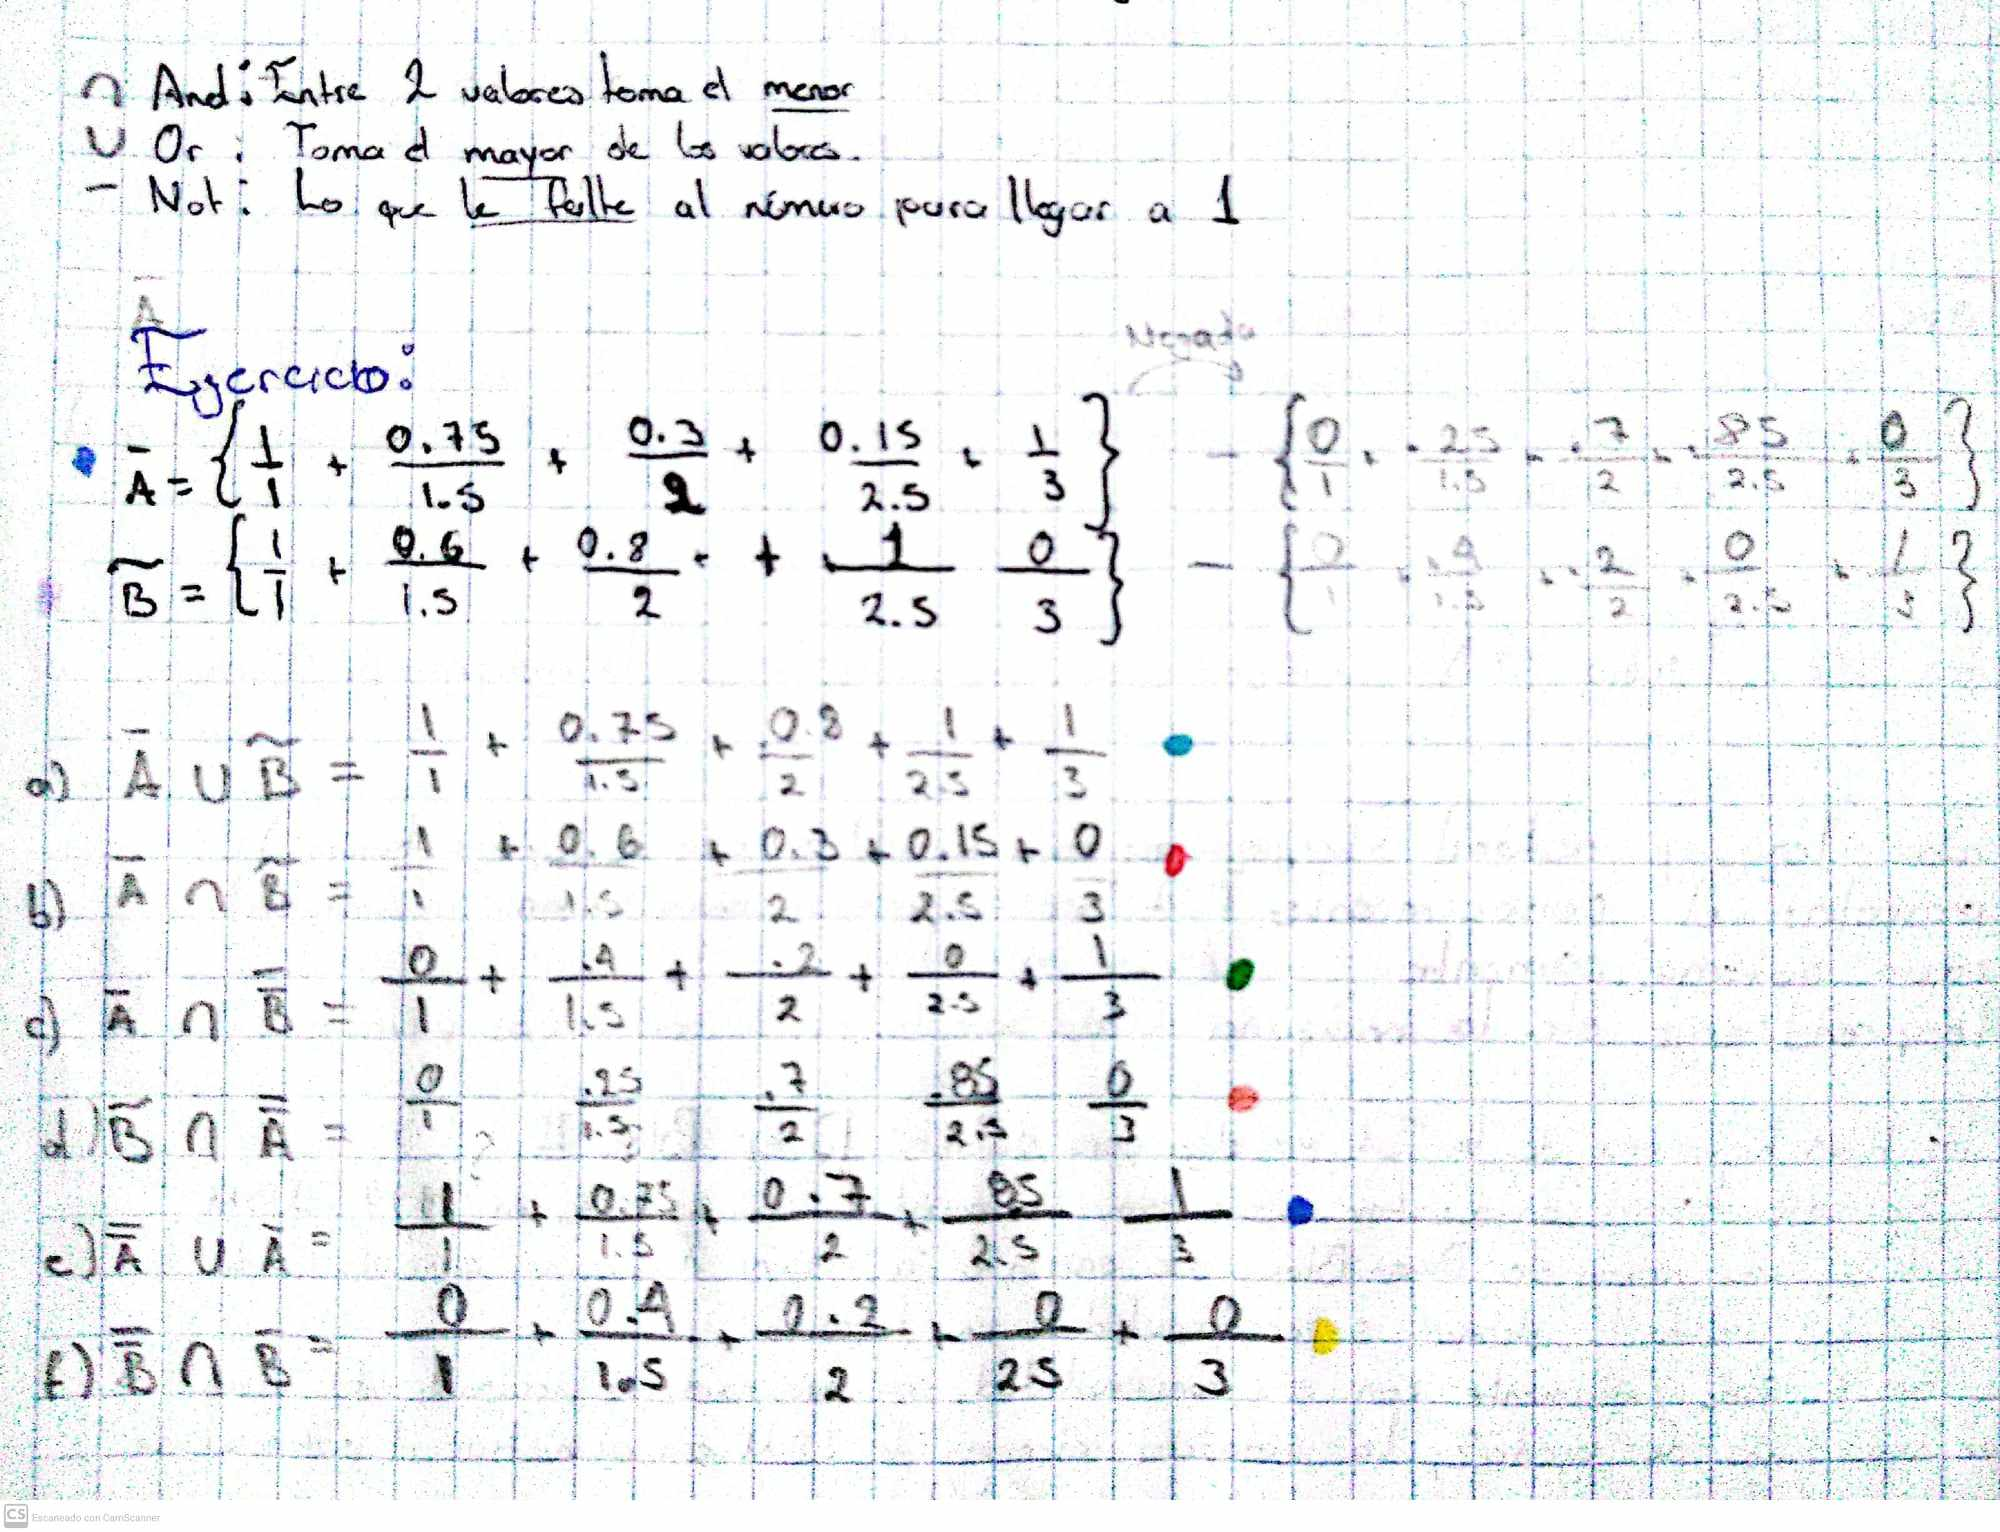 ∩ And: Entre 2 valores toma el menor
∪ Or: Toma el mayor de los valores.
— Not: Lo que le falte al número para llegar a 1
A̅
Ejercicio:
Negada
A̅ = {1/1 + 0.75/1.5 + 0.3/2 + 0.15/2.5 + 1/3} — {0/1 + .25/1.5 + .7/2 + .85/2.5 + 0/3}
B̃ = {1/1 + 0.6/1.5 + 0.8/2 + 1/2.5 0/3} — {0/1 + .4/1.5 + .2/2 + 0/2.5 + 1/3}
a) A̅ ∪ B̃ = 1/1 + 0.75/1.5 + 0.8/2 + 1/2.5 + 1/3
b) A̅ ∩ B̃ = 1/1 + 0.6/1.5 + 0.3/2 + 0.15/2.5 + 0/3
c) A̅ ∩ B̿ = 0/1 + .4/1.5 + .2/2 + 0/2.5 + 1/3
d) B̃ ∩ A̿ = 0/1 .25/1.5 .7/2 .85/2.5 0/3
e) A̿ ∪ A̅ = 1/1 + 0.75/1.5 + 0.7/2 + 85/2.5 1/3
f) B̿ ∩ B̅ = 0/1 + 0.4/1.5 + 0.2/2 + 0/25 + 0/3
CS Escaneado con CamScanner